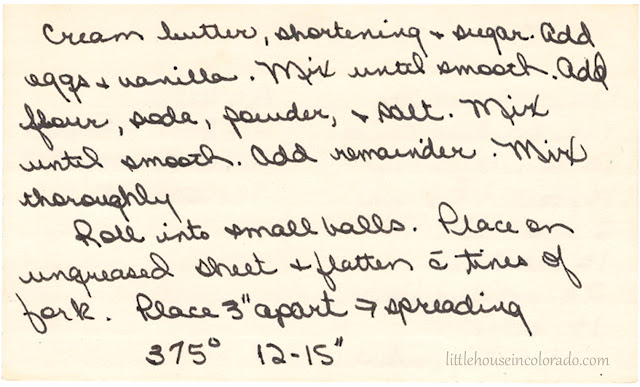 Cream butter, shortening + sugar. Add
eggs + vanilla. Mix until smooth. Add
flour, soda, powder, + salt. Mix
until smooth. Add remainder. Mix
thoroughly
Roll into small balls. Place on
ungreased sheet + flatten c̄ tines of
fork. Place 3" apart → spreading
375° 12-15"
littlehouseincolorado.com